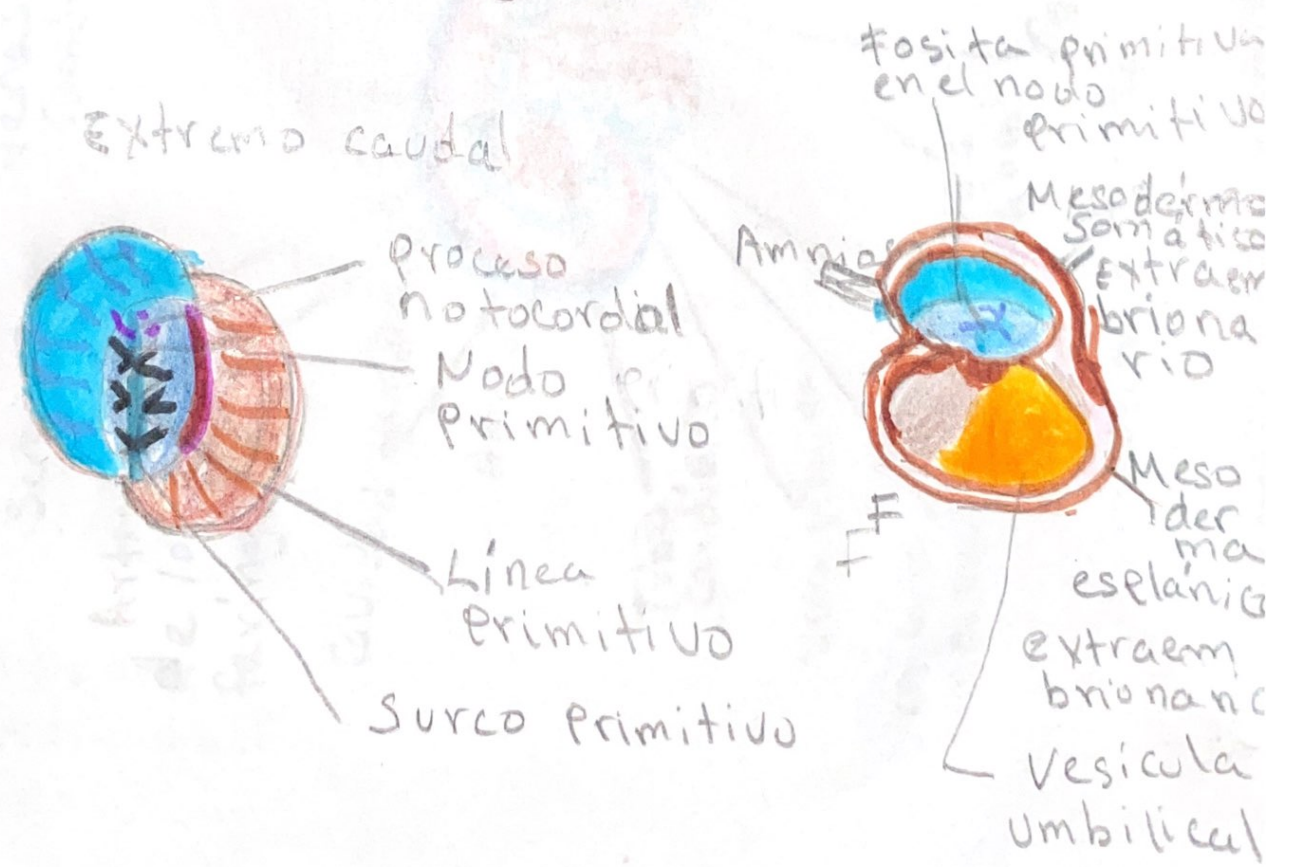 Extremo caudal
Proceso
notocordial
Nodo
primitivo
Línea
primitivo
Surco primitivo
Fosita primitiva
en el nodo
primitivo
Amnios
Mesodérmo
Somático
Extraem
briona
rio
Meso
der
ma
esplánic
extraem
brionario
Vesícula
umbilical
F
F